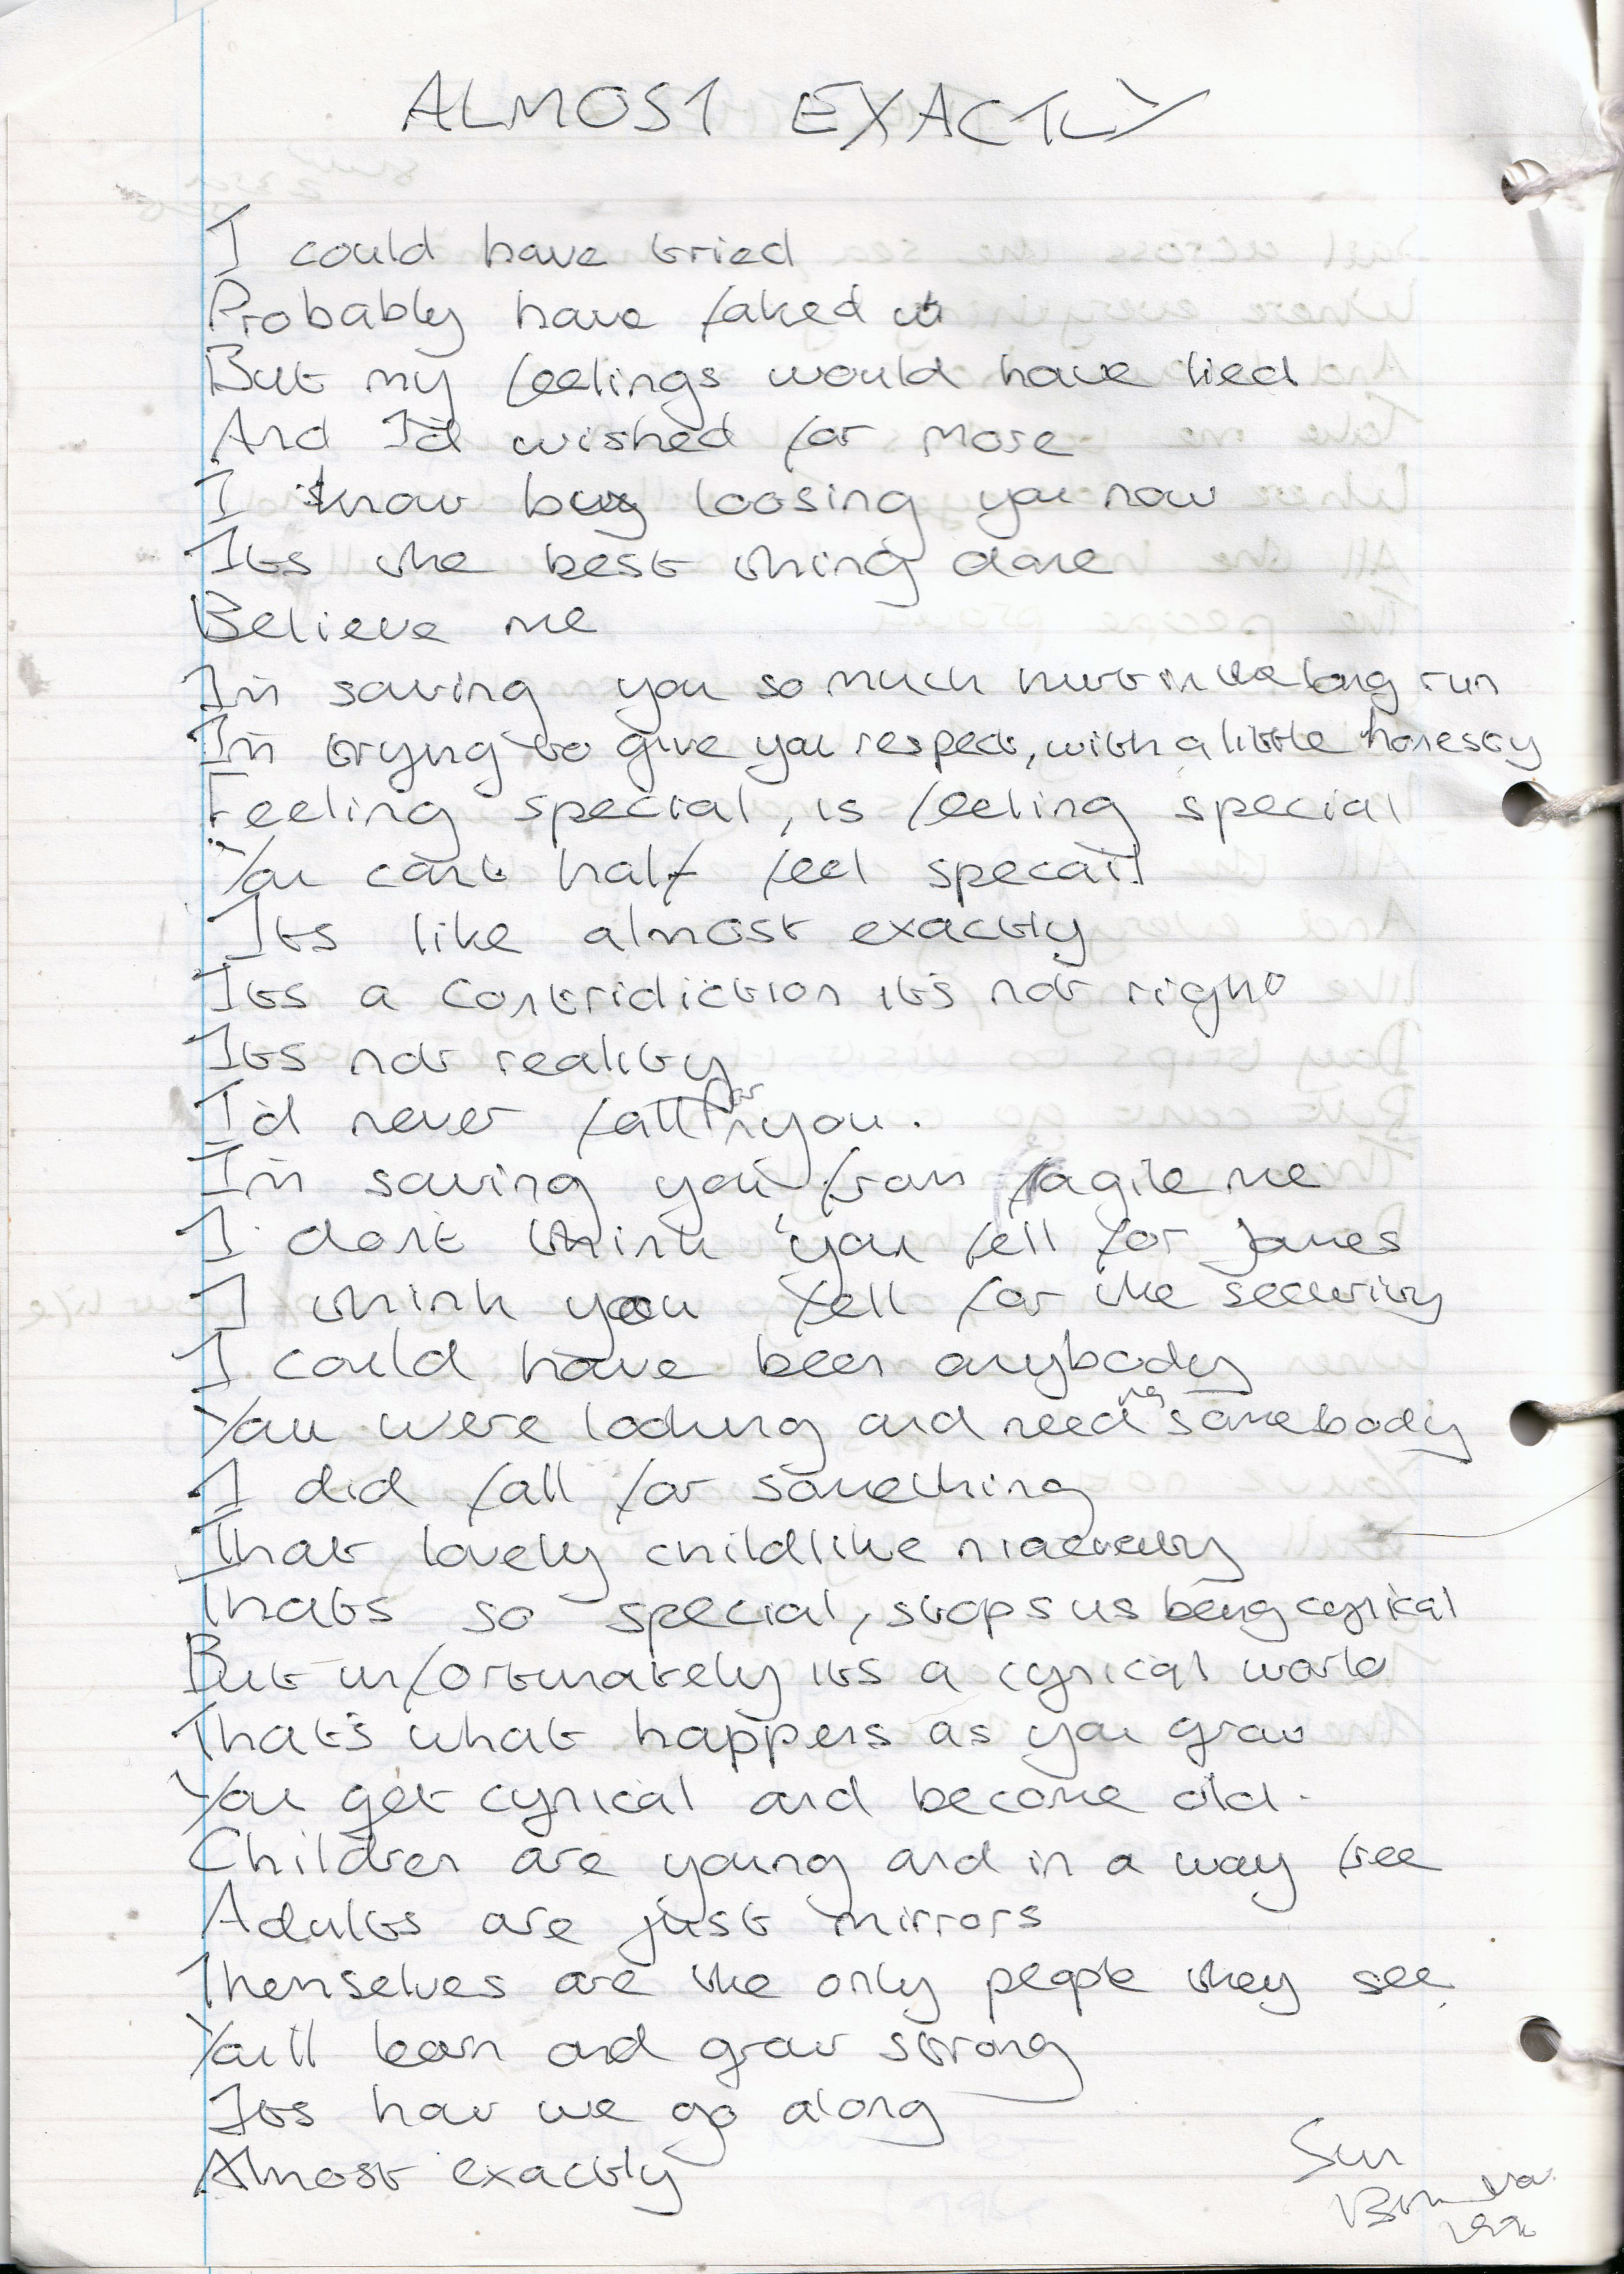 ALMOST EXACTLY
I could have tried
Probably have faked it
But my feelings would have lied
And I'd wished for more
I know by loosing you now
Its the best thing done
Believe me
I'm saving you so much hurt in the long run
I'm trying to give you respect, with a little honesty
Feeling special, is feeling special
You cant half feel specail
Its like almost exactly
Its a contridiction its not right
Its not reality
I'd never fall for you.
I'm saving you from fagile me
I don't think you fell for James
I think you fell for the security
I could have been anybody
You were looking and needing somebody
I did fall for something
That lovely childlike
Thats so special, stops us being cynical
But unfortunately its a cynical world
That's what happens as you grow
You get cynical and become old.
Children are young and in a way free
Adults are just mirrors
Themselves are the only people they see
You'll learn and grow strong
Its how we go along
Almost exactly
Sun